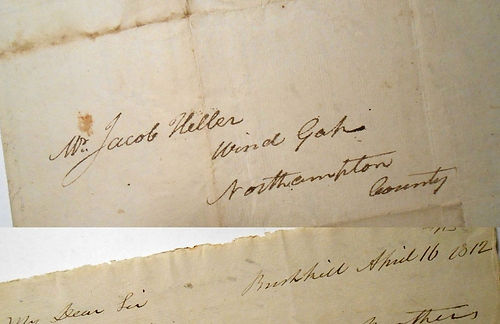 Mr. Jacob Heller
Wind Gap
Northampton
County
Bushkill April 16 1812
My Dear Sir
Brothers